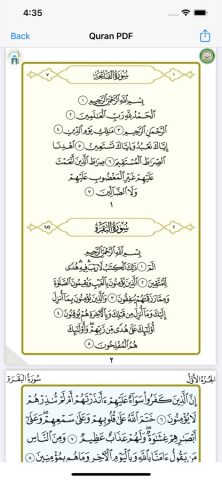 4:35
Back Quran PDF
١ سورة الفاتحة ٧
بِسْمِ اللَّهِ الرَّحْمَٰنِ الرَّحِيمِ ١
الْحَمْدُ لِلَّهِ رَبِّ الْعَالَمِينَ ٢
الرَّحْمَٰنِ الرَّحِيمِ ٣ مَالِكِ يَوْمِ الدِّينِ ٤
إِيَّاكَ نَعْبُدُ وَإِيَّاكَ نَسْتَعِينُ ٥ اهْدِنَا
الصِّرَاطَ الْمُسْتَقِيمَ ٦ صِرَاطَ الَّذِينَ أَنْعَمْتَ
عَلَيْهِمْ غَيْرِ الْمَغْضُوبِ عَلَيْهِمْ
وَلَا الضَّالِّينَ ٧
١
٢ سورة البقرة
بِسْمِ اللَّهِ الرَّحْمَٰنِ الرَّحِيمِ
الم ١ ذَٰلِكَ الْكِتَابُ لَا رَيْبَ فِيهِ هُدًى
لِلْمُتَّقِينَ ٢ الَّذِينَ يُؤْمِنُونَ بِالْغَيْبِ وَيُقِيمُونَ الصَّلَاةَ
وَمِمَّا رَزَقْنَاهُمْ يُنْفِقُونَ ٣ وَالَّذِينَ يُؤْمِنُونَ بِمَا أُنْزِلَ
إِلَيْكَ وَمَا أُنْزِلَ مِنْ قَبْلِكَ وَبِالْآخِرَةِ هُمْ يُوقِنُونَ ٤
أُولَٰئِكَ عَلَىٰ هُدًى مِنْ رَبِّهِمْ وَأُولَٰئِكَ
هُمُ الْمُفْلِحُونَ ٥
٢
الجزء الأول سورة البقرة
إِنَّ الَّذِينَ كَفَرُوا سَوَاءٌ عَلَيْهِمْ أَأَنْذَرْتَهُمْ أَمْ لَمْ تُنْذِرْهُمْ
لَا يُؤْمِنُونَ ٦ خَتَمَ اللَّهُ عَلَىٰ قُلُوبِهِمْ وَعَلَىٰ سَمْعِهِمْ وَعَلَىٰ
أَبْصَارِهِمْ غِشَاوَةٌ وَلَهُمْ عَذَابٌ عَظِيمٌ ٧ وَمِنَ النَّاسِ
مَنْ يَقُولُ آمَنَّا بِاللَّهِ وَبِالْيَوْمِ الْآخِرِ وَمَا هُمْ بِمُؤْمِنِينَ ٨